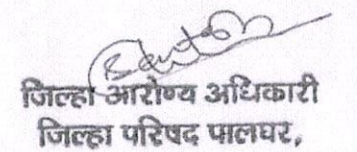 जिल्हा आरोग्य अधिकारी
जिल्हा परिषद पालघर,